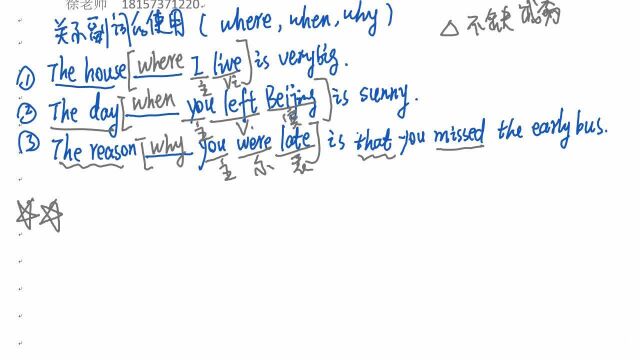 徐老师 18157371220
关系副词的使用 (where, when, why) △ 不缺成分
① The house [where I live] is very big.
主 vi
② The day [when you left Beijing] is sunny.
主 V. 宾
③ The reason [why you were late] is that you missed the early bus.
主 系 表
☆☆